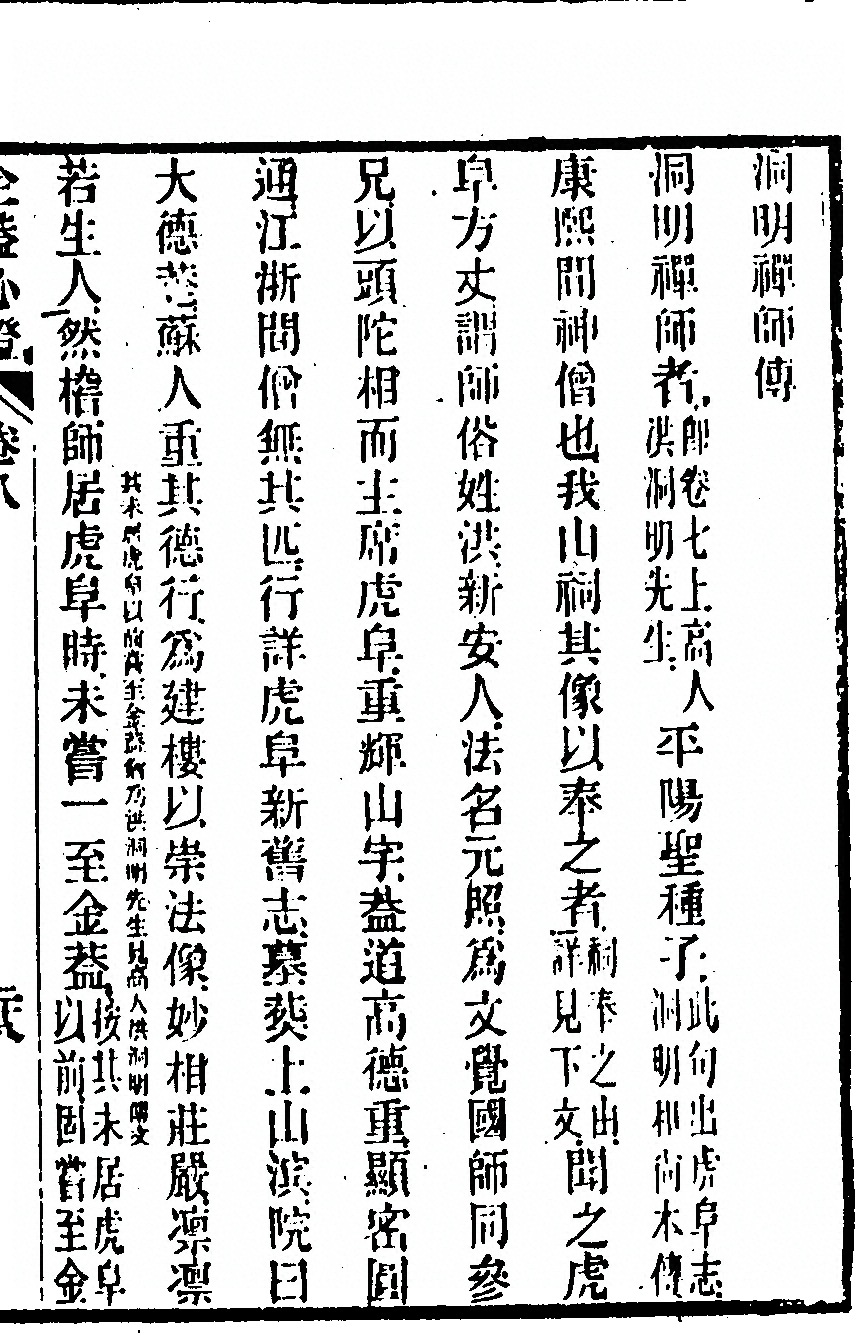 洞明禪師傳
洞明禪師者即卷七上高人洪洞明先生平陽聖種子此句出虎阜志洞明和尚本傳
康熙間神僧也我山祠其像以奉之者祠奉之由詳見下文聞之虎
阜方丈謂師俗姓洪新安人法名元照爲文覺國師同參
兄以頭陀相而主席虎阜重輝山宇葢道高德重顯密圓
通江浙間僧無其匹行詳虎阜新舊志墓葬上山濱院曰
大德菴蘇人重其德行爲建樓以崇法像妙相莊嚴凛凛
其未居虎阜以前嘗至金葢乃洪洞明先生見高人洪洞明傳文
若生人然稽師居虎阜時未嘗一至金葢按其未居虎阜以前固嘗至金
金葢心燈 卷八